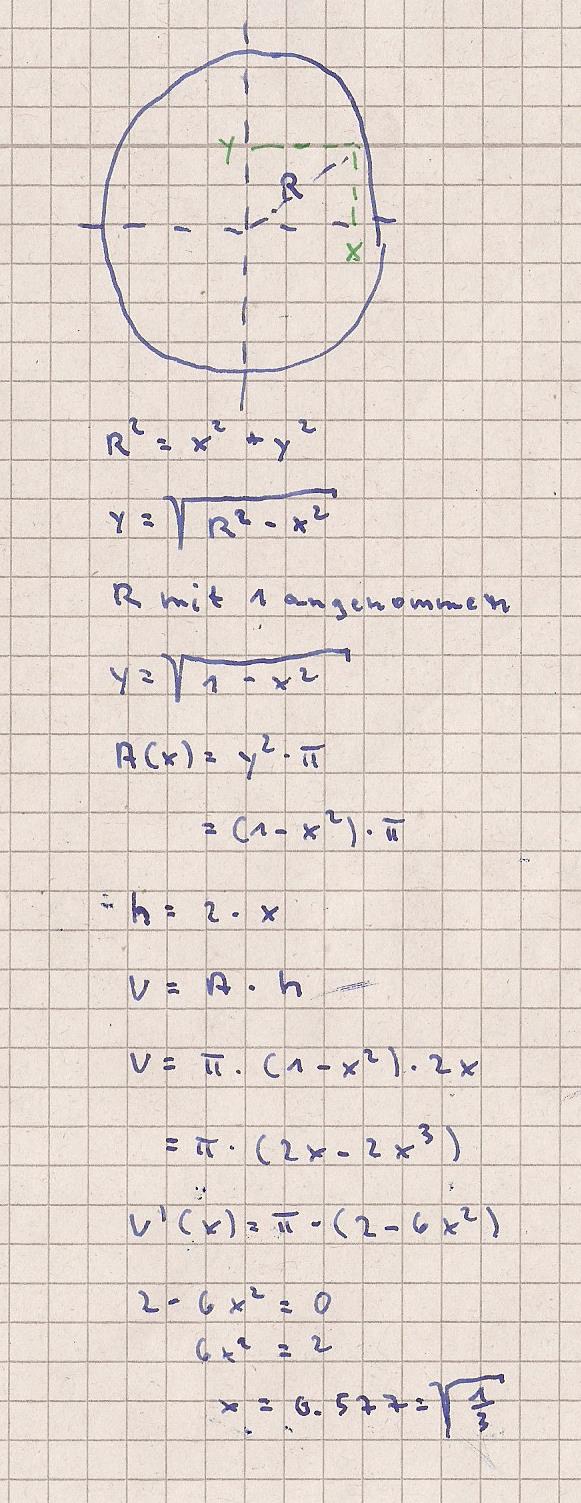 Y
R
X
R² = x² + y²
y = √(R² - x²)
R mit 1 angenommen
y = √(1 - x²)
A(x) = y² · π
= (1 - x²) · π
= h = 2 · x
V = A · h
V = π · (1 - x²) · 2x
= π · (2x - 2x³)
V'(x) = π · (2 - 6x²)
2 - 6x² = 0
6x² = 2
x = 0.577 = √(1/3)